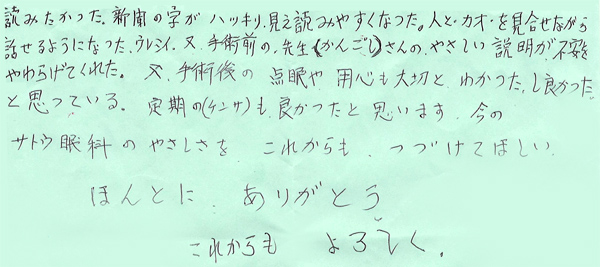 読みたかった、新聞の字がハッキリ、見え読みやすくなった。人と・カオ・を見合せながら
話せるようになった、ウレシイ、又、手術前の、先生(かんごし)さんの、やさしい説明が不安を
やわらげてくれた。又、手術後の点眼や用心も大切と、わかった、し良かった
と思っている。定期の(ケンサ)も、良かったと思います、今の
サトウ眼科のやさしさを、これからも、つづけてほしい
ほんとに、ありがとう
これからも よろしく。